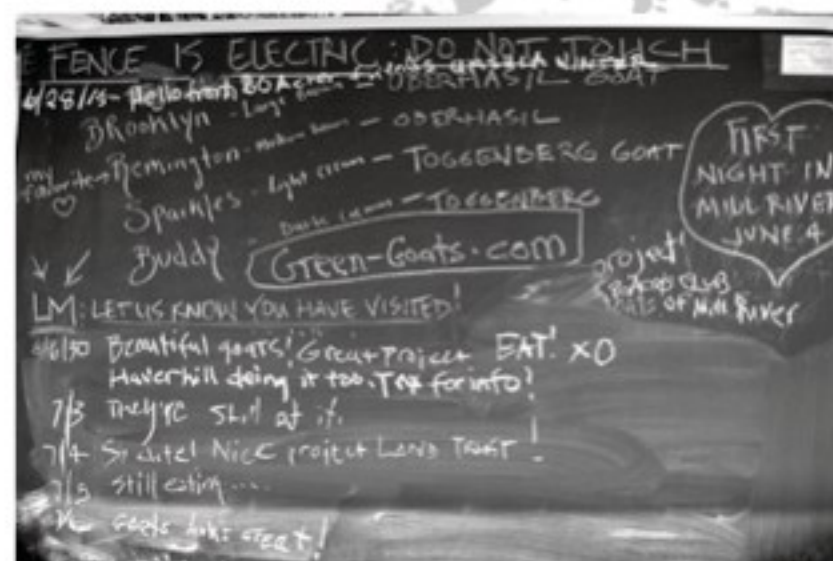 E FENCE IS ELECTRIC: DO NOT TOUCH
6/28/15- Hello from
Brooklyn - Large Brown - OBERHASIL GOAT
my favorite → Remington - Medium Brown - OBERHASIL
Sparkles - Light cream - TOGGENBERG GOAT
Buddy - Dark cream - TOGGENBERG
Green-Goats.com
FIRST
NIGHT IN
MILL RIVER
JUNE 4
project!
CLUB
OF Mill River
LM: LET US KNOW YOU HAVE VISITED!
Beautiful goats! Great Project EAT! XO
Haverhill doing it too. for info!
7/3 They're still at it.
7/4 Nice project LAND TRUST!
7/5 still eating....
GOATS GREAT!